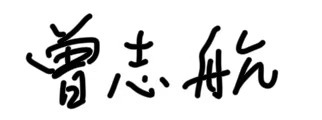 曾志航